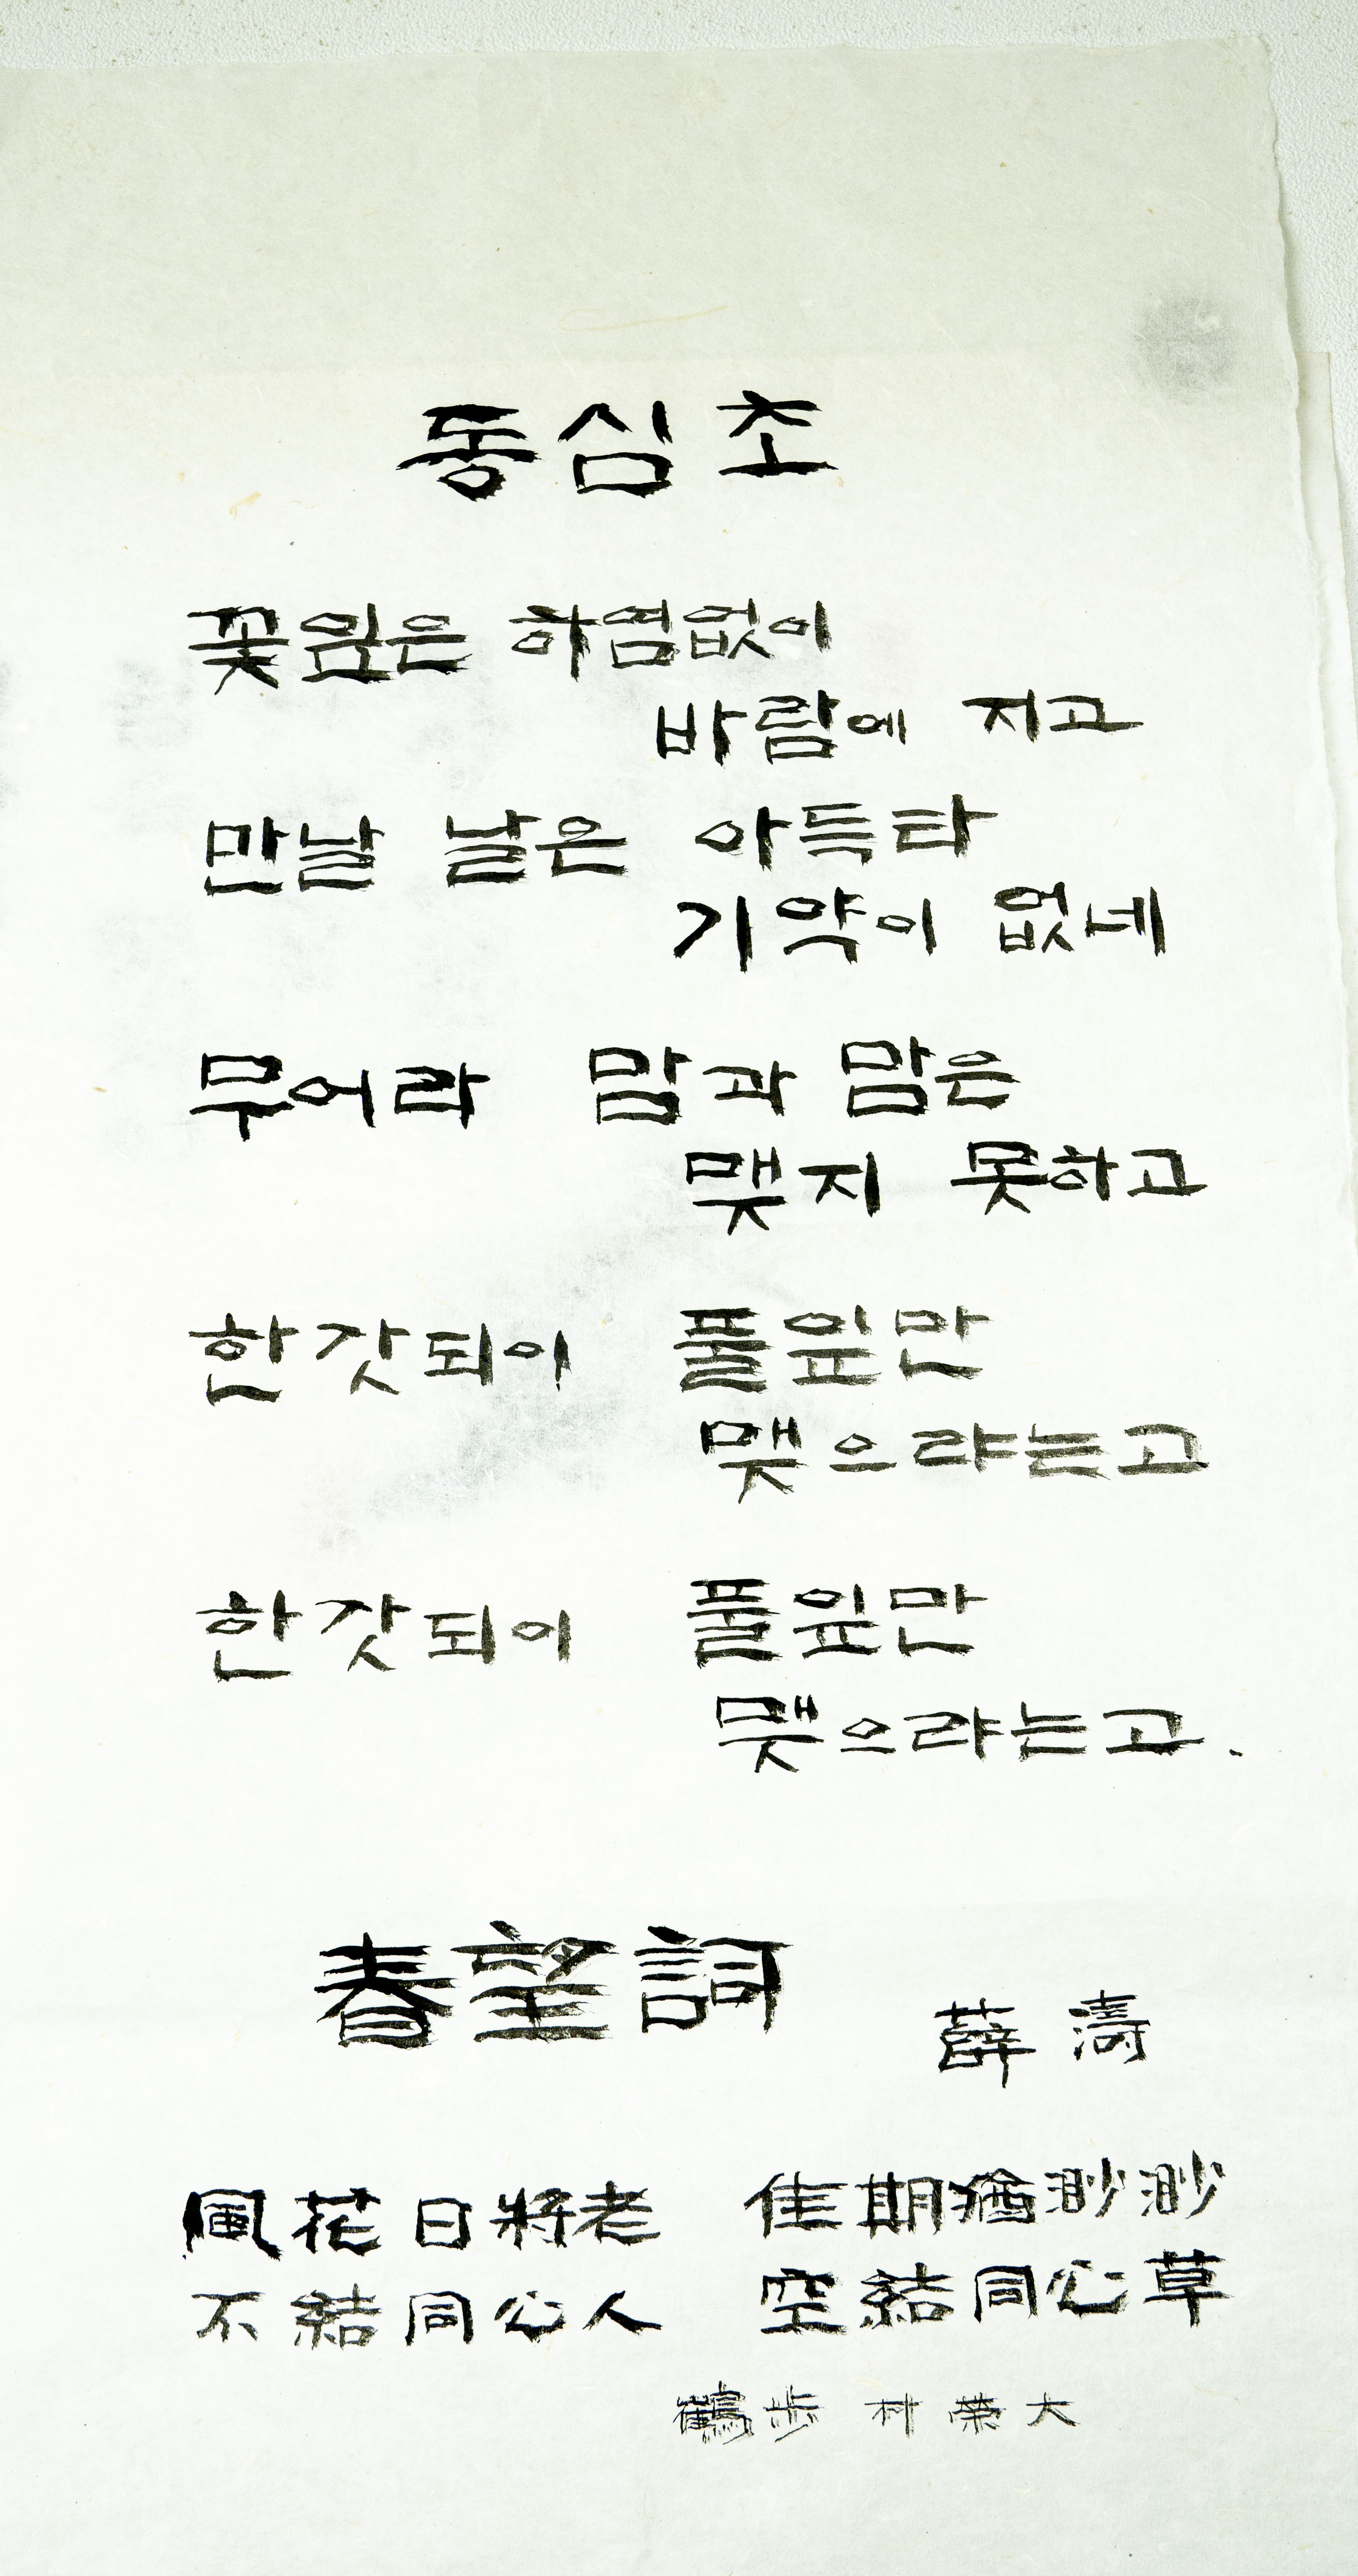 동심초
꽃잎은 하염없이
바람에 지고
만날 날은 아득타
기약이 없네
무어라 맘과 맘은
맺지 못하고
한갓되이 풀잎만
맺으랴는고
한갓되이 풀잎만
맺으랴는고.
春望詞
薛濤
風花日將老 佳期猶渺渺
不結同心人 空結同心草
鶴步 朴榮大